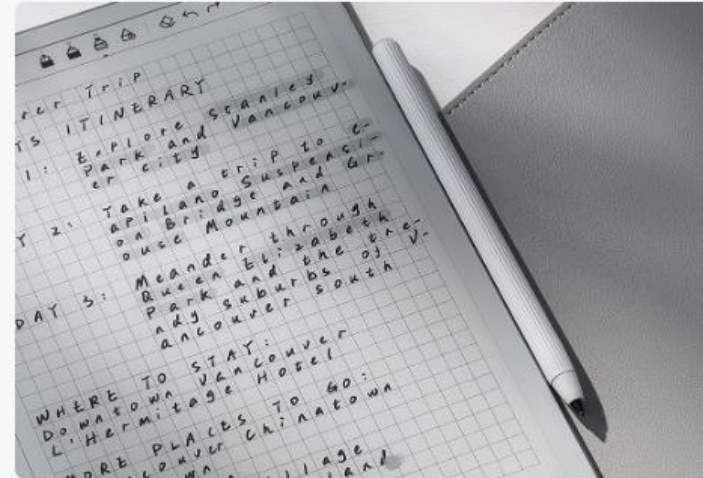 Trip
ITINERARY
1: Explore Stanley
Park and Vancouv-
er city
2: Take a trip to C-
apilano Suspensi-
on Bridge and Gr-
ouse Mountain
DAY 3: Meander through
Queen Elizabeth
Park and the tre-
ndy suburbs of V-
ancouver South
WHERE TO STAY:
Downtown Vancouver
L'Hermitage Hotel
PLACES TO GO:
Chinatown